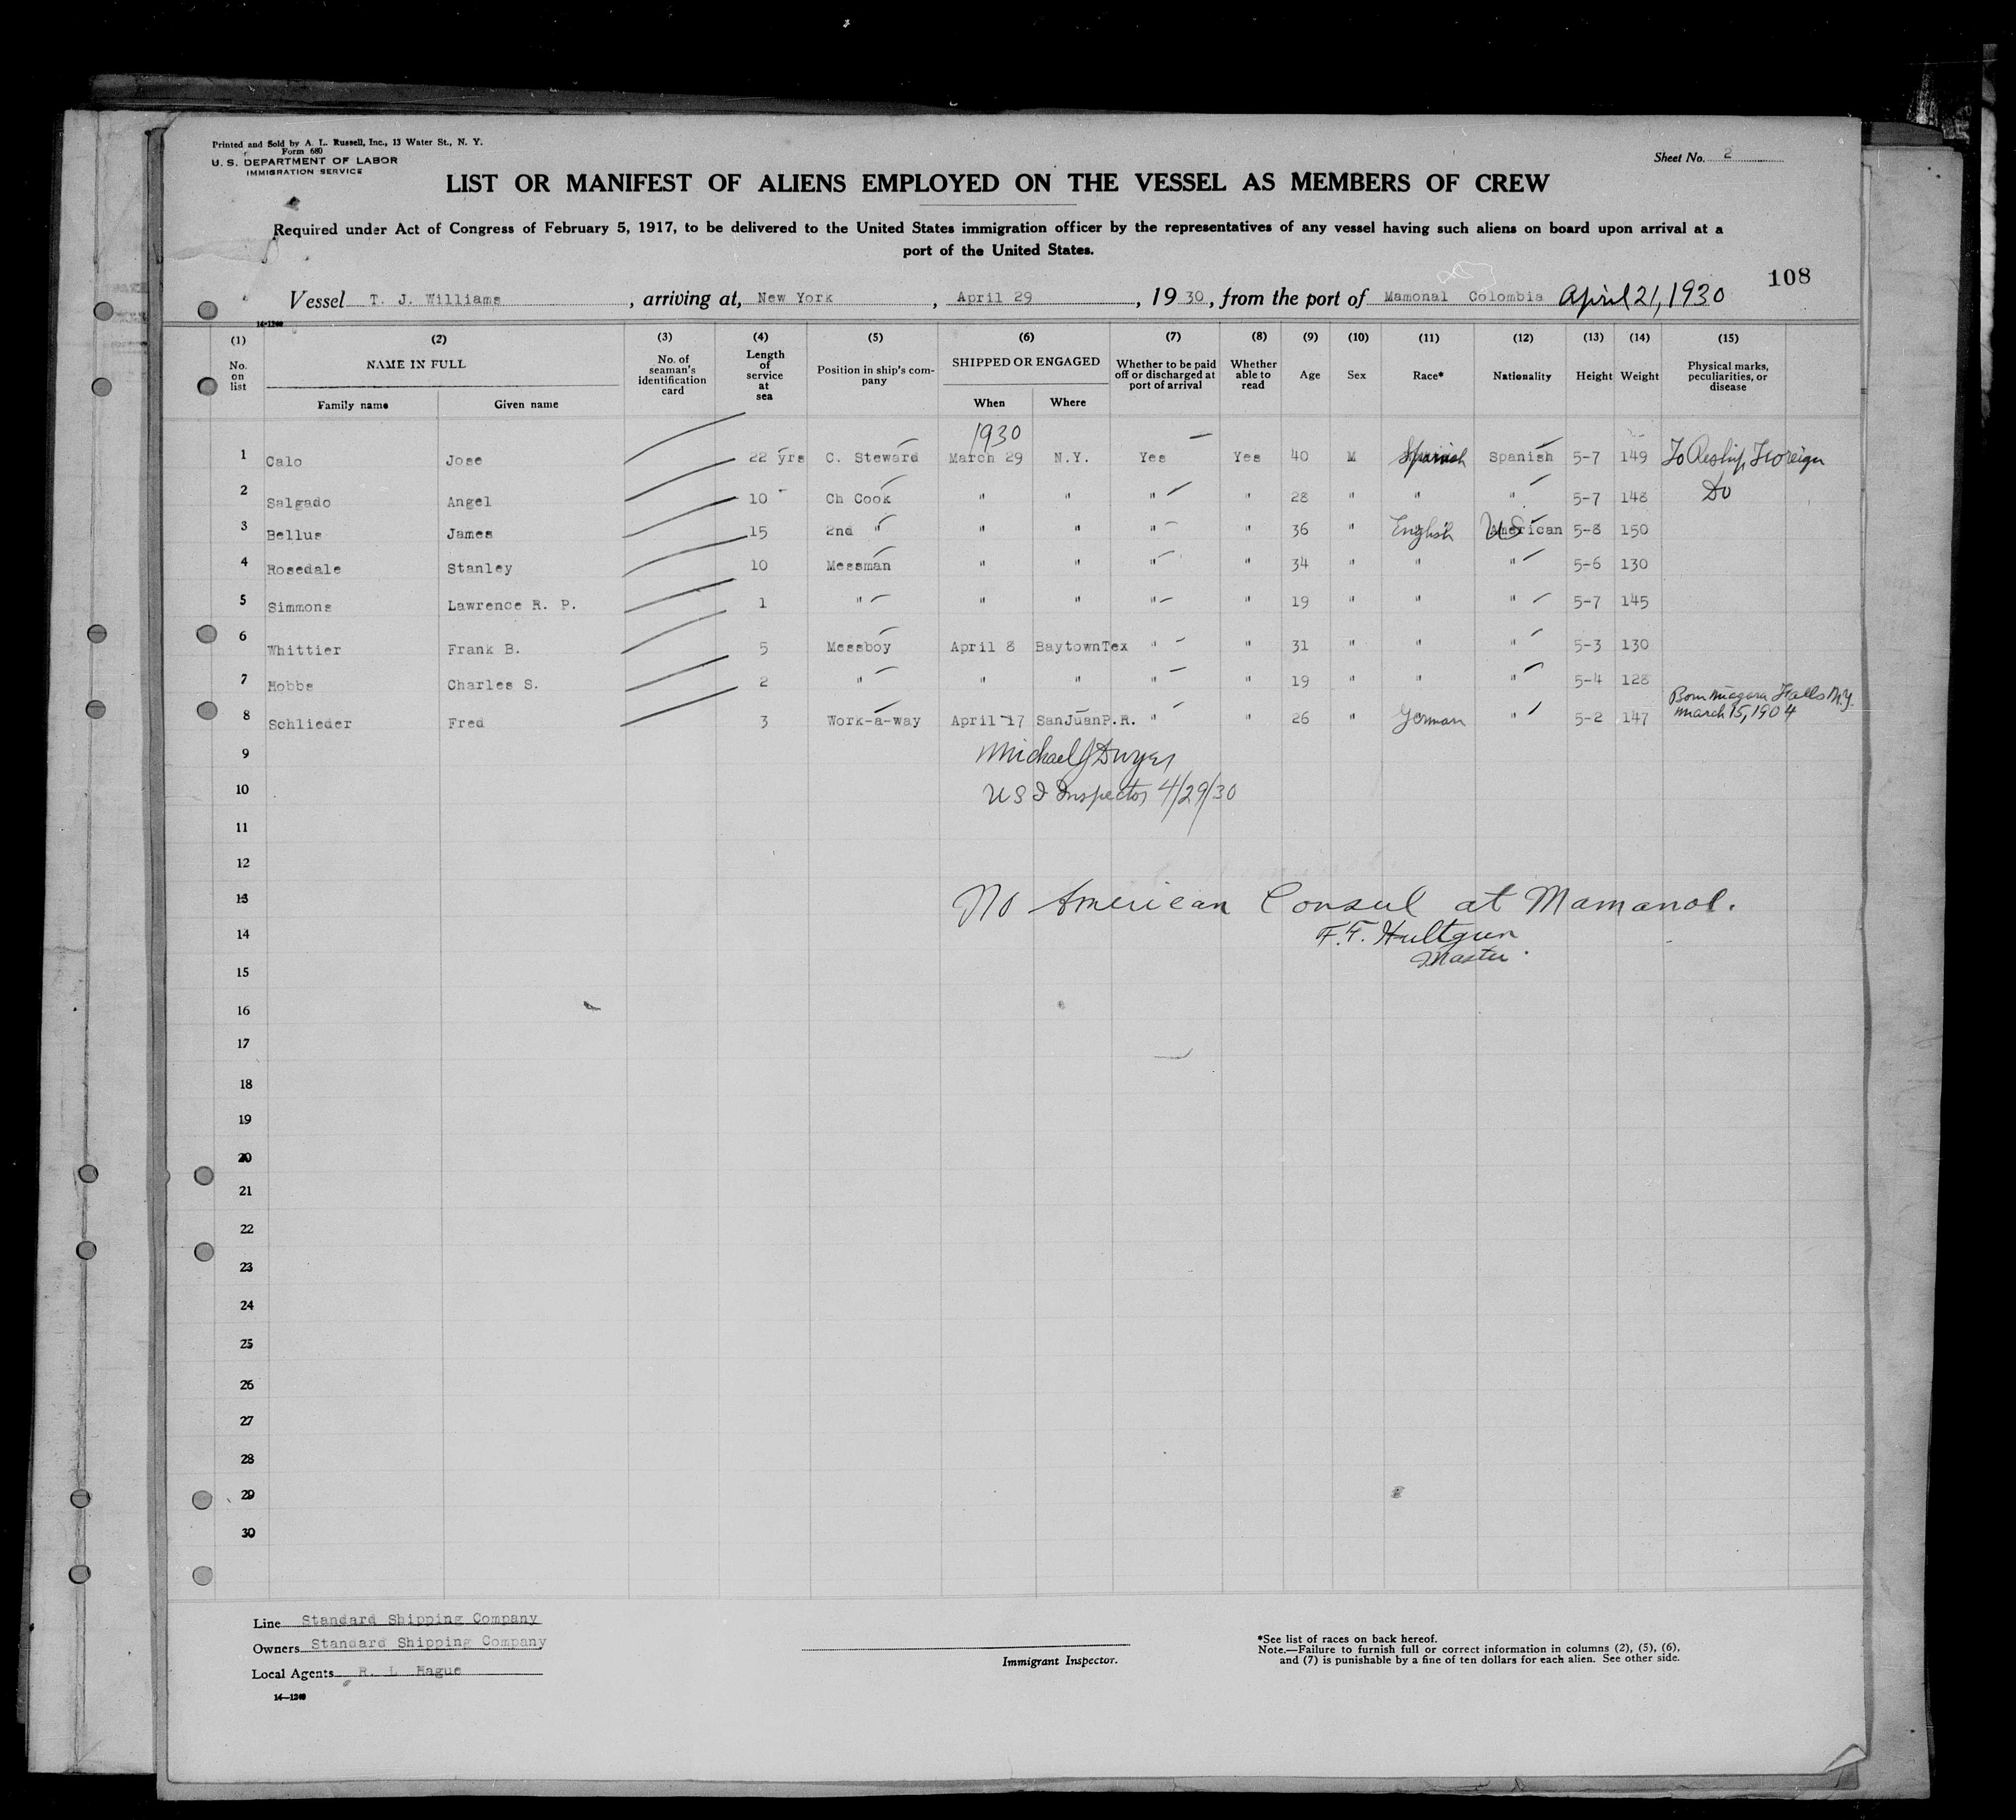 Printed and Sold by A. L. Russell, Inc., 13 Water St., N. Y.
Form 680
U. S. DEPARTMENT OF LABOR
IMMIGRATION SERVICE
Sheet No. 2
LIST OR MANIFEST OF ALIENS EMPLOYED ON THE VESSEL AS MEMBERS OF CREW
Required under Act of Congress of February 5, 1917, to be delivered to the United States immigration officer by the representatives of any vessel having such aliens on board upon arrival at a
port of the United States.
108
Vessel T. J. Williams, arriving at, New York, April 29, 1930, from the port of Mamonal Colombia April 21, 1930
14-1240
(1) (2) (3) (4) (5) (6) (7) (8) (9) (10) (11) (12) (13) (14) (15)
No. on list NAME IN FULL Family name Given name No. of seaman's identification card Length of service at sea Position in ship's company SHIPPED OR ENGAGED When Where Whether to be paid off or discharged at port of arrival Whether able to read Age Sex Race* Nationality Height Weight Physical marks, peculiarities, or disease
1930
1 Calo Jose 22 yrs C. Steward March 29 N.Y. Yes Yes 40 M Spanish Spanish 5-7 149 To Reship Foreign
2 Salgado Angel 10 Ch Cook " " " " 28 " " " 5-7 148 Do
3 Bellus James 15 2nd " " " " " 36 " English US American 5-8 150
4 Rosedale Stanley 10 Messman " " " " 34 " " " 5-6 130
5 Simmons Lawrence R. P. 1 " " " " " 19 " " " 5-7 145
6 Whittier Frank B. 5 Messboy April 8 BaytownTex " " 31 " " " 5-3 130
7 Hobbs Charles S. 2 " " " " " 19 " " " 5-4 128
Born Niagara Falls N.Y.
March 15, 1904
8 Schlieder Fred 3 Work-a-way April 17 SanJuanP.R. " " 26 " German " 5-2 147
9
Michael J Dwyer
10
U S I Inspector 4/29/30
11
12
13
No American Consul at Mamanol.
14
F. F. Hultgren
Master.
15
16
17
18
19
20
21
22
23
24
25
26
27
28
29
30
Line Standard Shipping Company
Owners Standard Shipping Company
Local Agents R. L Hague
14-1240
Immigrant Inspector.
*See list of races on back hereof.
Note.—Failure to furnish full or correct information in columns (2), (5), (6),
and (7) is punishable by a fine of ten dollars for each alien. See other side.